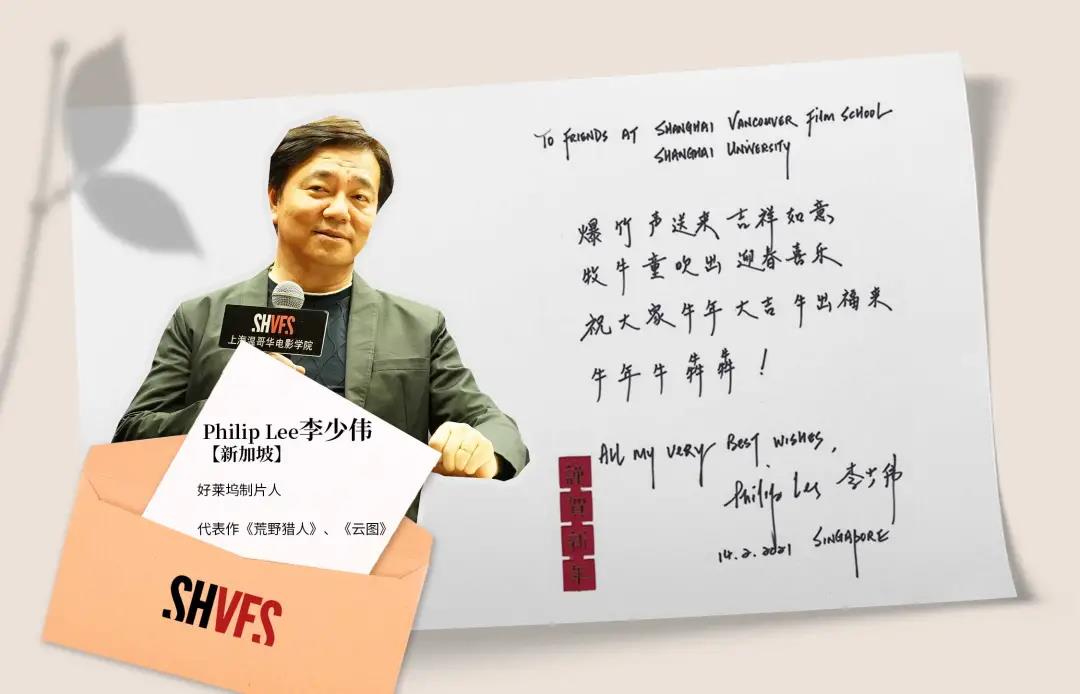 .SHVFS
上海温哥华电影学院
Philip Lee李少伟
【新加坡】
好莱坞制片人
代表作《荒野猎人》、《云图》
.SHVFS
TO FRIENDS AT SHANGHAI VANCOUVER FILM SCHOOL
SHANGHAI UNIVERSITY
爆竹声送来吉祥如意
牧牛童吹出迎春喜乐
祝大家牛年大吉牛出福来
牛年牛犇犇！
All My very Best wishes,
Philip Lee 李少伟
14.2.2021 SINGAPORE
謹
賀
新
年